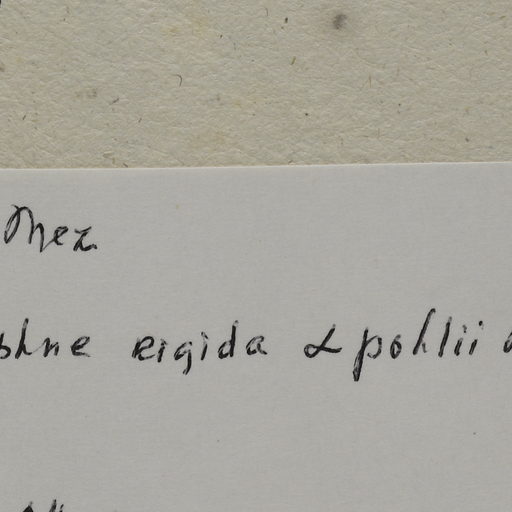 Mez
phne rigida α pohlii